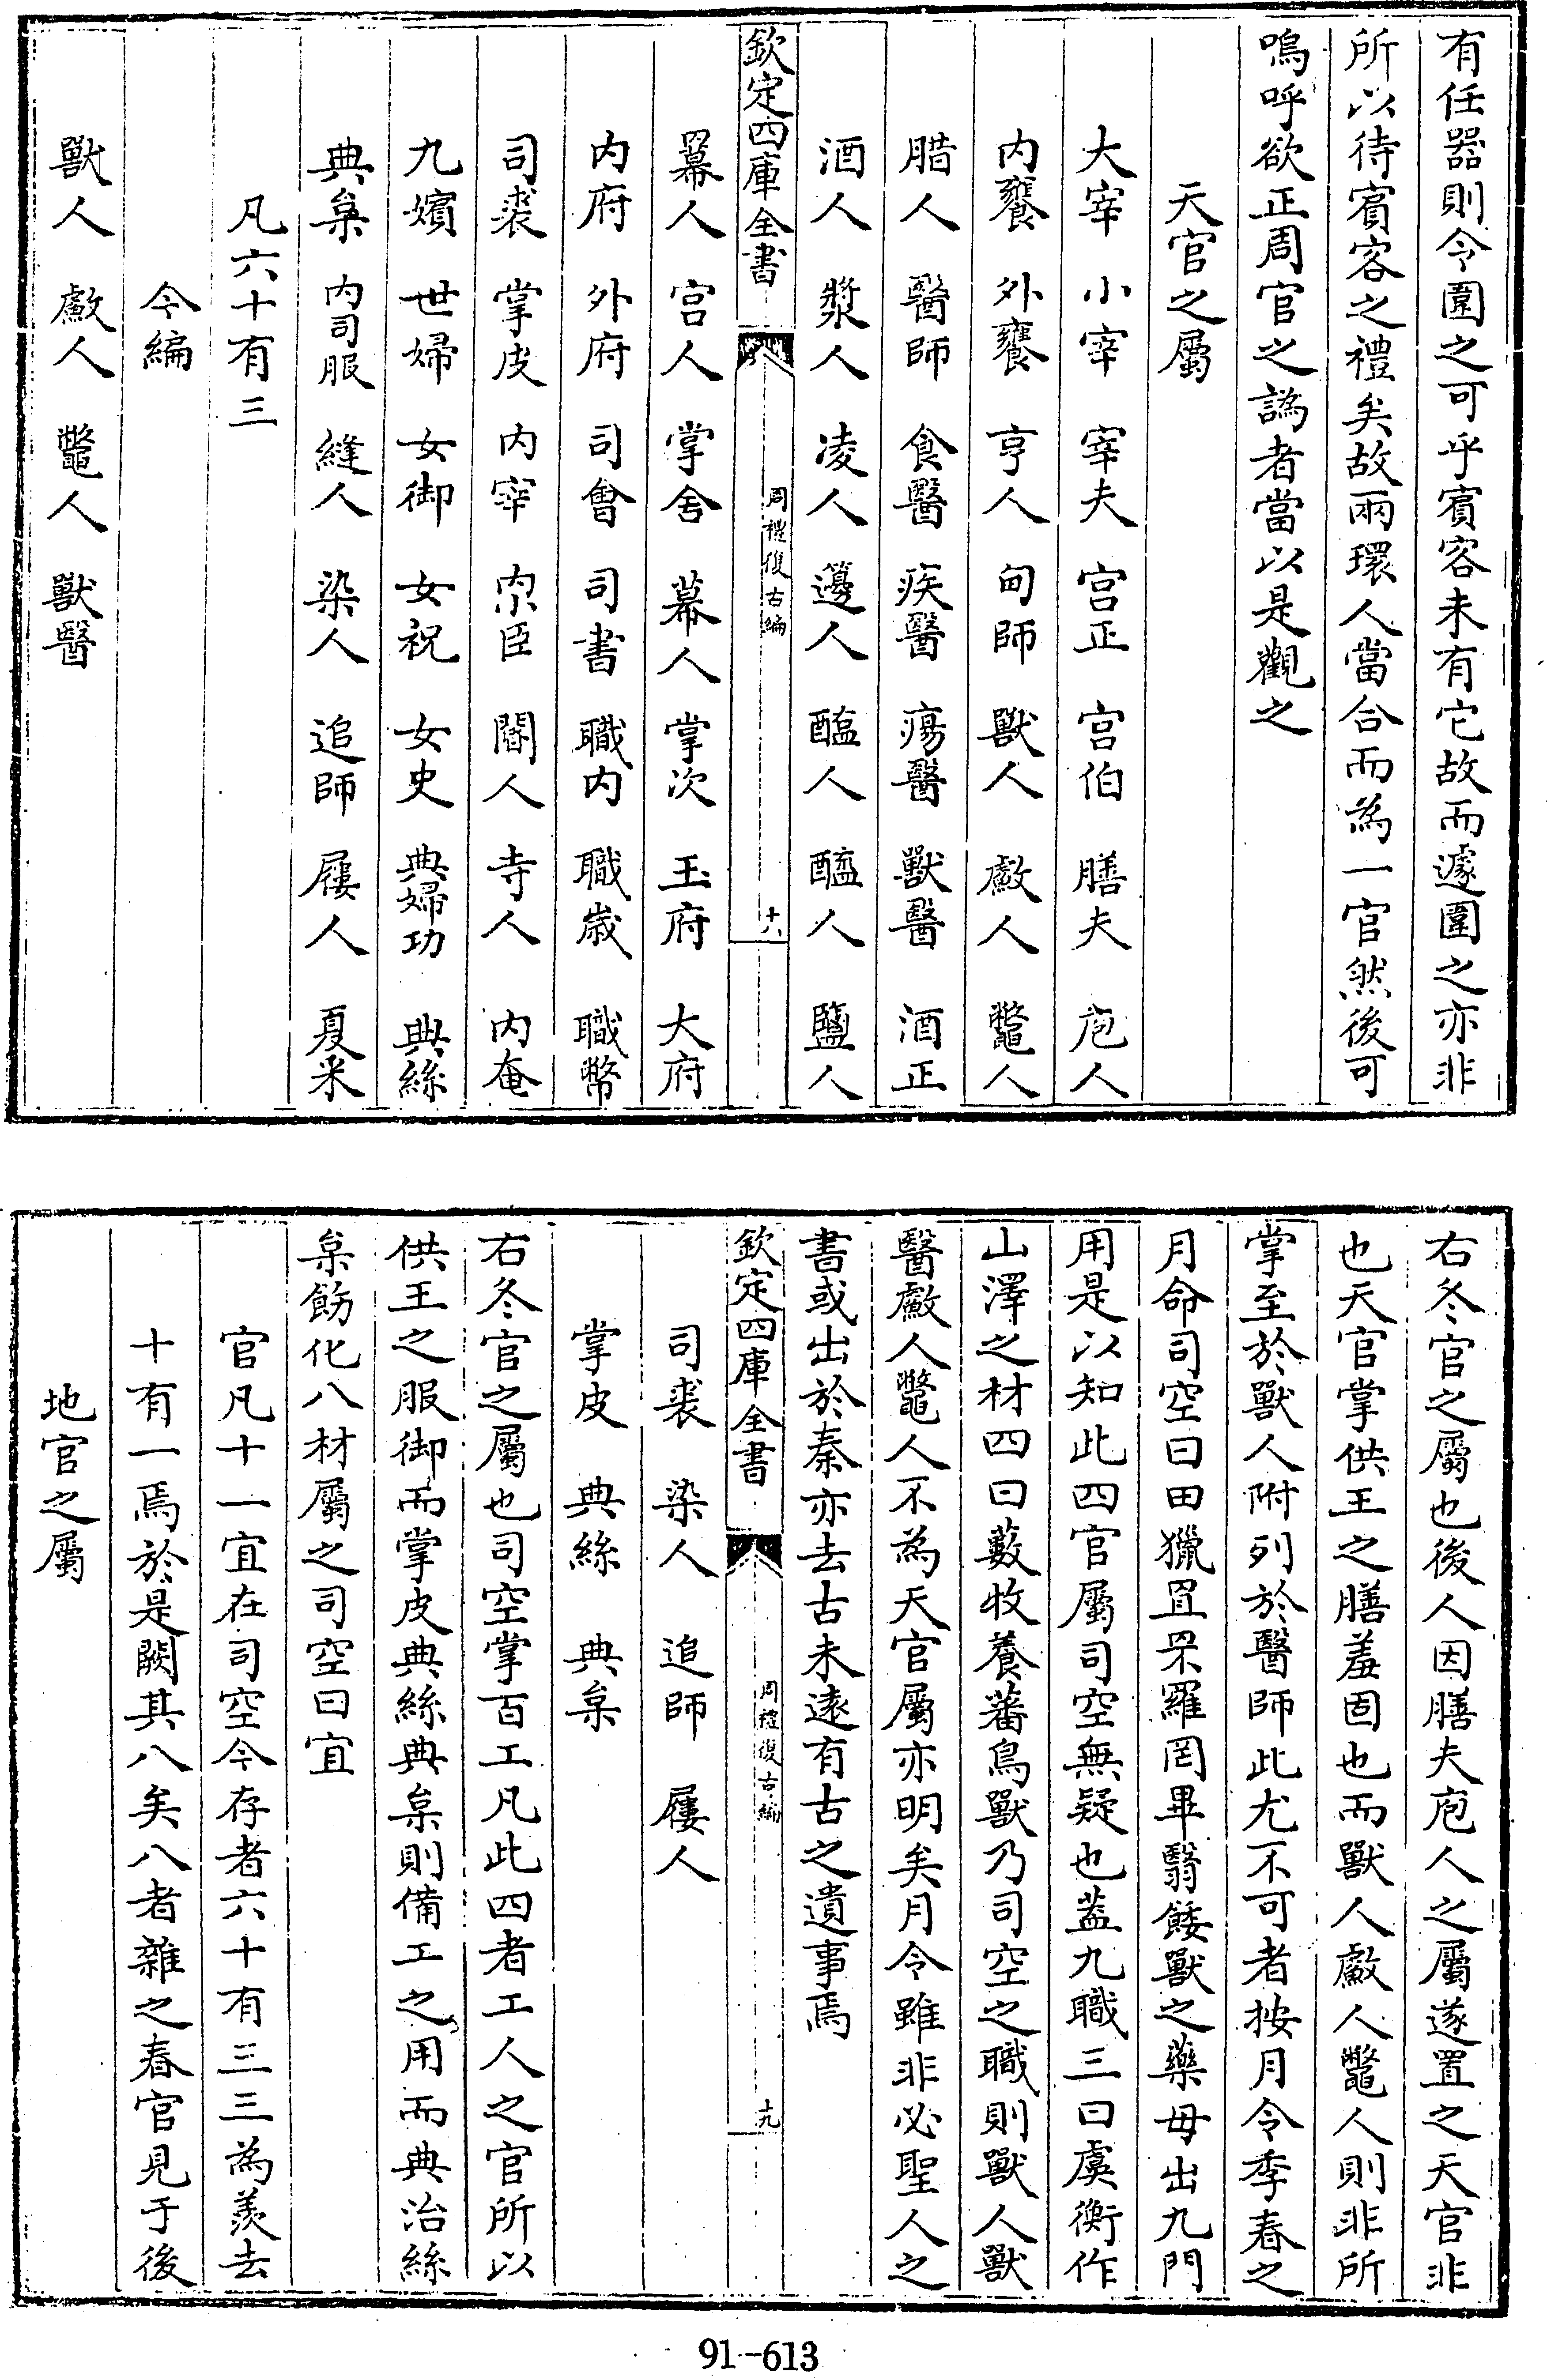 有任器則令圍之可乎賓客未有它故而遽圍之亦非
所以待賓客之禮矣故兩環人當合而為一官然後可
嗚呼欲正周官之譌者當以是觀之
天官之屬
大宰 小宰 宰夫 宫正 宫伯 膳夫 庖人
内饔 外饔 亨人 甸師 獸人 䱷人 鼈人
腊人 醫師 食醫 疾醫 瘍醫 獸醫 酒正
酒人 漿人 凌人 籩人 醢人 醯人 鹽人
欽定四庫全書 周禮復古編 十八
冪人 宫人 掌舍 幕人 掌次 玉府 大府
内府 外府 司會 司書 職内 職歲 職幣
司裘 掌皮 内宰 内宗臣 閽人 寺人 内奄
九嬪 世婦 女御 女祝 女史 典婦功 典絲
典枲 内司服 縫人 染人 追師 屨人 夏采
凡六十有三
今編
獸人 䱷人 鼈人 獸醫
右冬官之屬也後人因膳夫庖人之屬遂置之天官非
也天官掌供王之膳羞固也而獸人䱷人鼈人則非所
掌至於獸人附列於醫師此尤不可者按月令季春之
月命司空曰田獵罝罘羅罔畢翳餧獸之藥毋出九門
用是以知此四官屬司空無疑也蓋九職三曰虞衡作
山澤之材四曰藪牧養蕃鳥獸乃司空之職則獸人獸
醫䱷人鼈人不為天官屬亦明矣月令雖非必聖人之
書或出於秦亦去古未遠有古之遺事焉
欽定四庫全書 周禮復古編 十九
司裘 染人 追師 屨人
掌皮 典絲 典枲
右冬官之屬也司空掌百工凡此四者工人之官所以
供王之服御而掌皮典絲典枲則備工之用而典治絲
枲飭化八材屬之司空曰宜
官凡十一宜在司空今存者六十有三三為羨去
十有一焉於是闕其八矣八者雜之春官見于後
地官之屬
91-613